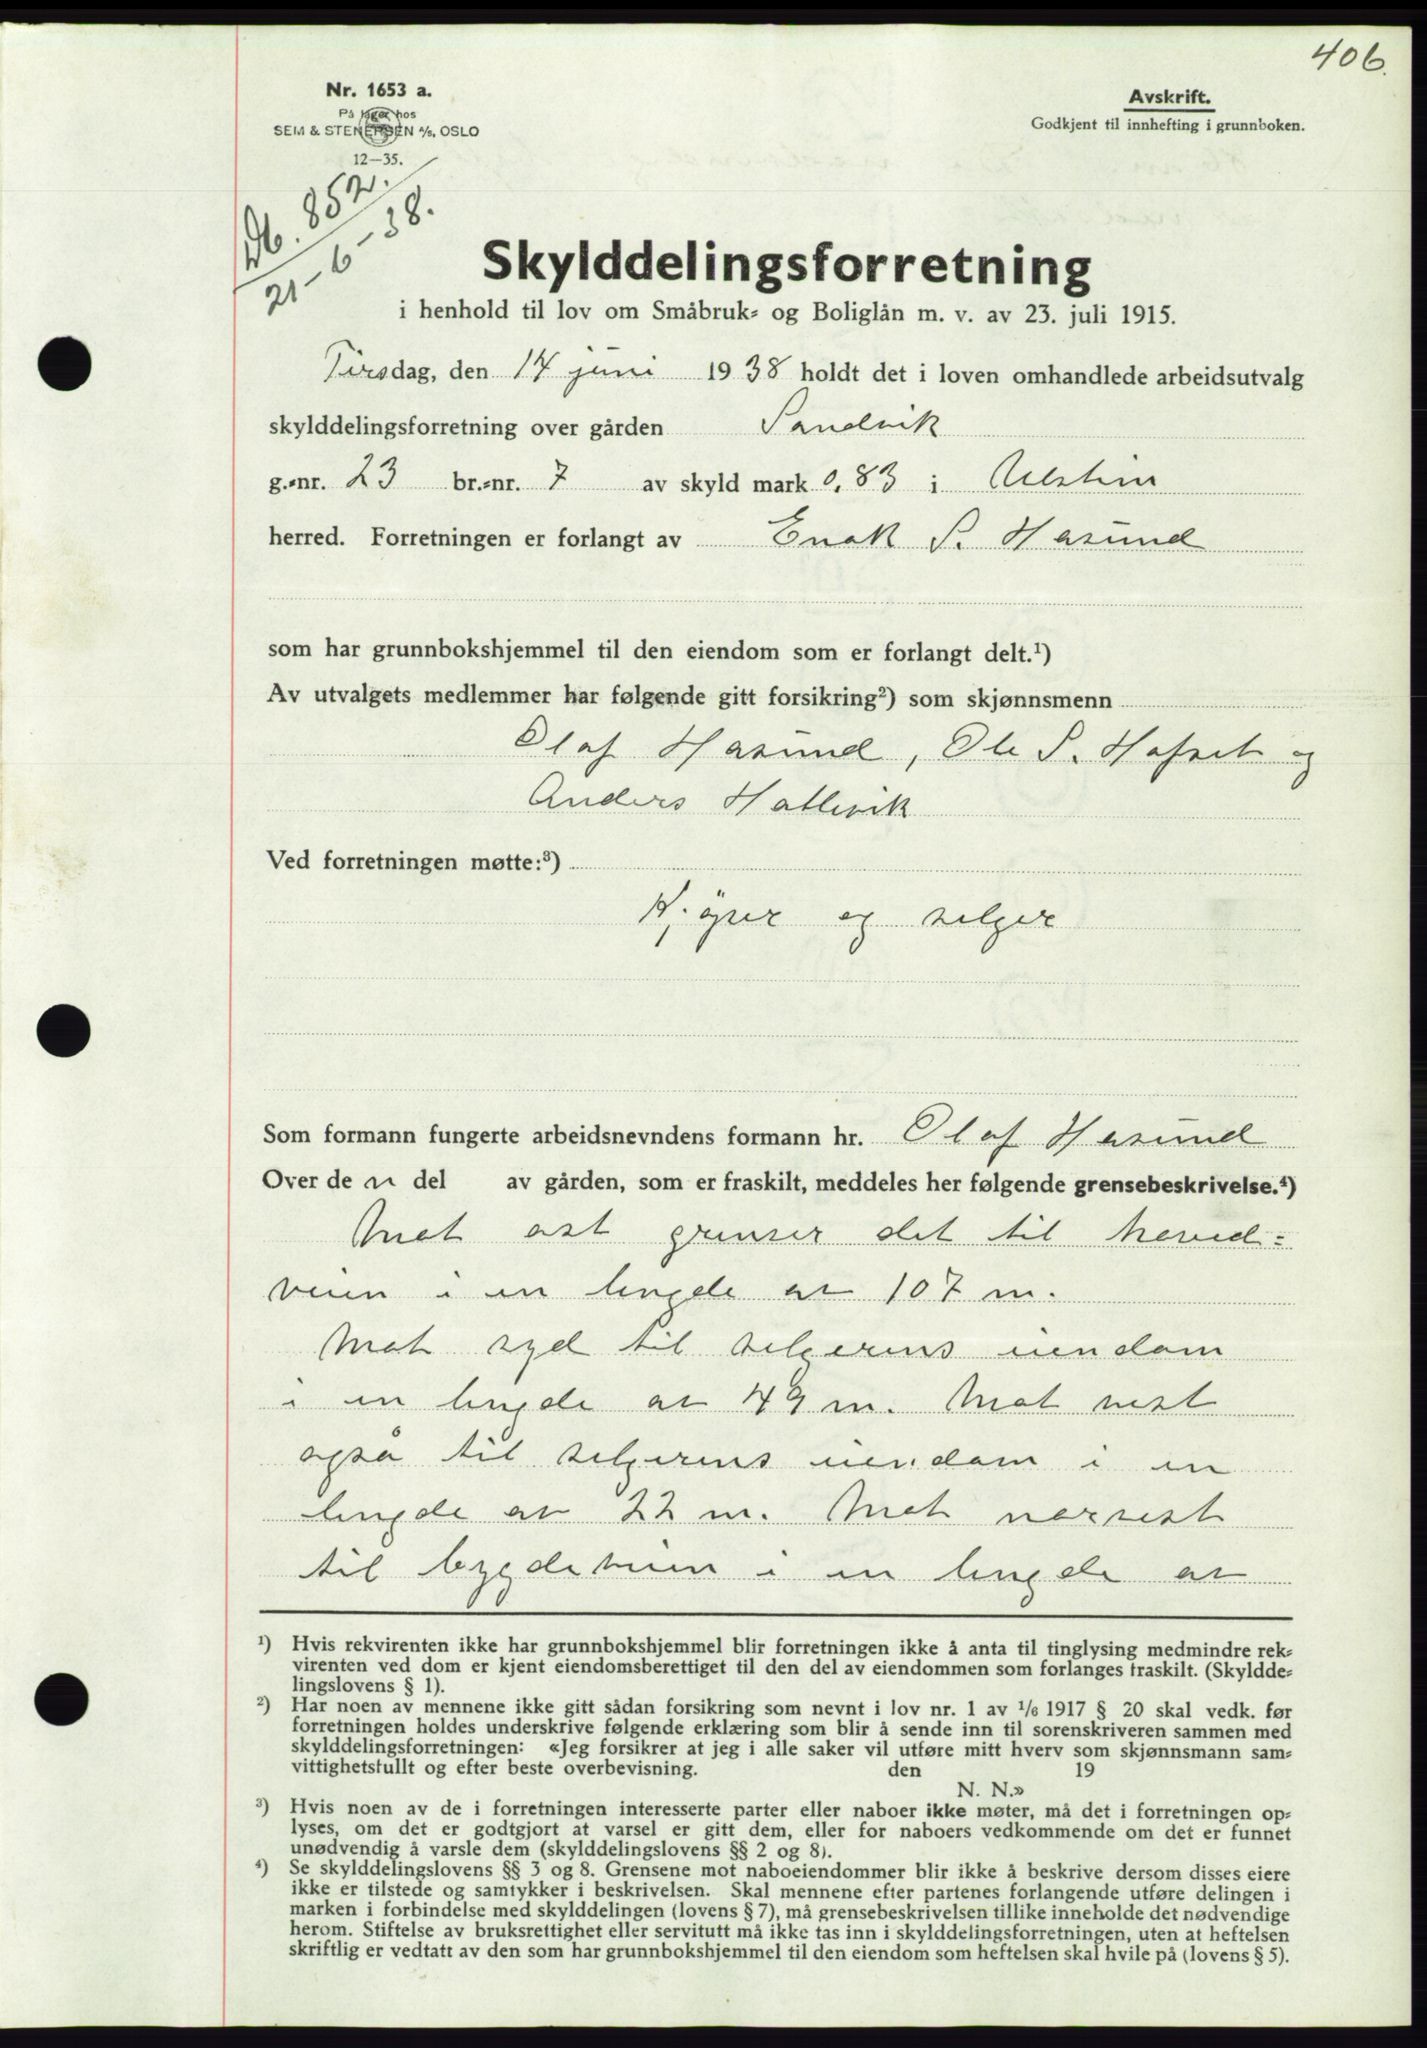 406.
Nr. 1653 a.
På lager hos
SEM & STENERSEN A/S, OSLO
12—35.
Avskrift.
Godkjent til innhefting i grunnboken.
Db. 852.
21-6-38.
Skylddelingsforretning
i henhold til lov om Småbruk- og Boliglån m. v. av 23. juli 1915.
Tirsdag, den 14 juni 1938 holdt det i loven omhandlede arbeidsutvalg
skylddelingsforretning over gården Sandvik
g.-nr. 23 br.-nr. 7 av skyld mark 0,83 i Ulstein
herred. Forretningen er forlangt av Enok S. Hasund
som har grunnbokshjemmel til den eiendom som er forlangt delt.¹)
Av utvalgets medlemmer har følgende gitt forsikring²) som skjønnsmenn
Olaf Hasund, Ole S. Hofset og
Anders Hatlevik
Ved forretningen møtte:³)
Kjøper og selger
Som formann fungerte arbeidsnevndens formann hr. Olaf Hasund
Over de n del av gården, som er fraskilt, meddeles her følgende grensebeskrivelse.⁴)
Mot øst grenser det til hoved-
veien i en lengde av 107 m.
Mot syd til selgerens eiendom
i en lengde av 49 m. Mot vest
også til selgerens eiendom i en
lengde av 22 m. Mot norvest
til bygdeveien i en lengde av
¹) Hvis rekvirenten ikke har grunnbokshjemmel blir forretningen ikke å anta til tinglysing medmindre rek-
virenten ved dom er kjent eiendomsberettiget til den del av eiendommen som forlanges fraskilt. (Skyldde-
lingslovens § 1).
²) Har noen av mennene ikke gitt sådan forsikring som nevnt i lov nr. 1 av 1/6 1917 § 20 skal vedk. før
forretningen holdes underskrive følgende erklæring som blir å sende inn til sorenskriveren sammen med
skylddelingsforretningen: «Jeg forsikrer at jeg i alle saker vil utføre mitt hverv som skjønnsmann sam-
vittighetsfullt og efter beste overbevisning. den 19
N. N.»
³) Hvis noen av de i forretningen interesserte parter eller naboer ikke møter, må det i forretningen op-
lyses, om det er godtgjort at varsel er gitt dem, eller for naboers vedkommende om det er funnet
unødvendig å varsle dem (skylddelingslovens §§ 2 og 8).
⁴) Se skylddelingslovens §§ 3 og 8. Grensene mot naboeiendommer blir ikke å beskrive dersom disses eiere
ikke er tilstede og samtykker i beskrivelsen. Skal mennene efter partenes forlangende utføre delingen i
marken i forbindelse med skylddelingen (lovens § 7), må grensebeskrivelsen tillike inneholde det nødvendige
herom. Stiftelse av bruksrettighet eller servitutt må ikke tas inn i skylddelingsforretningen, uten at heftelsen
skriftlig er vedtatt av den som har grunnbokshjemmel til den eiendom som heftelsen skal hvile på (lovens § 5).